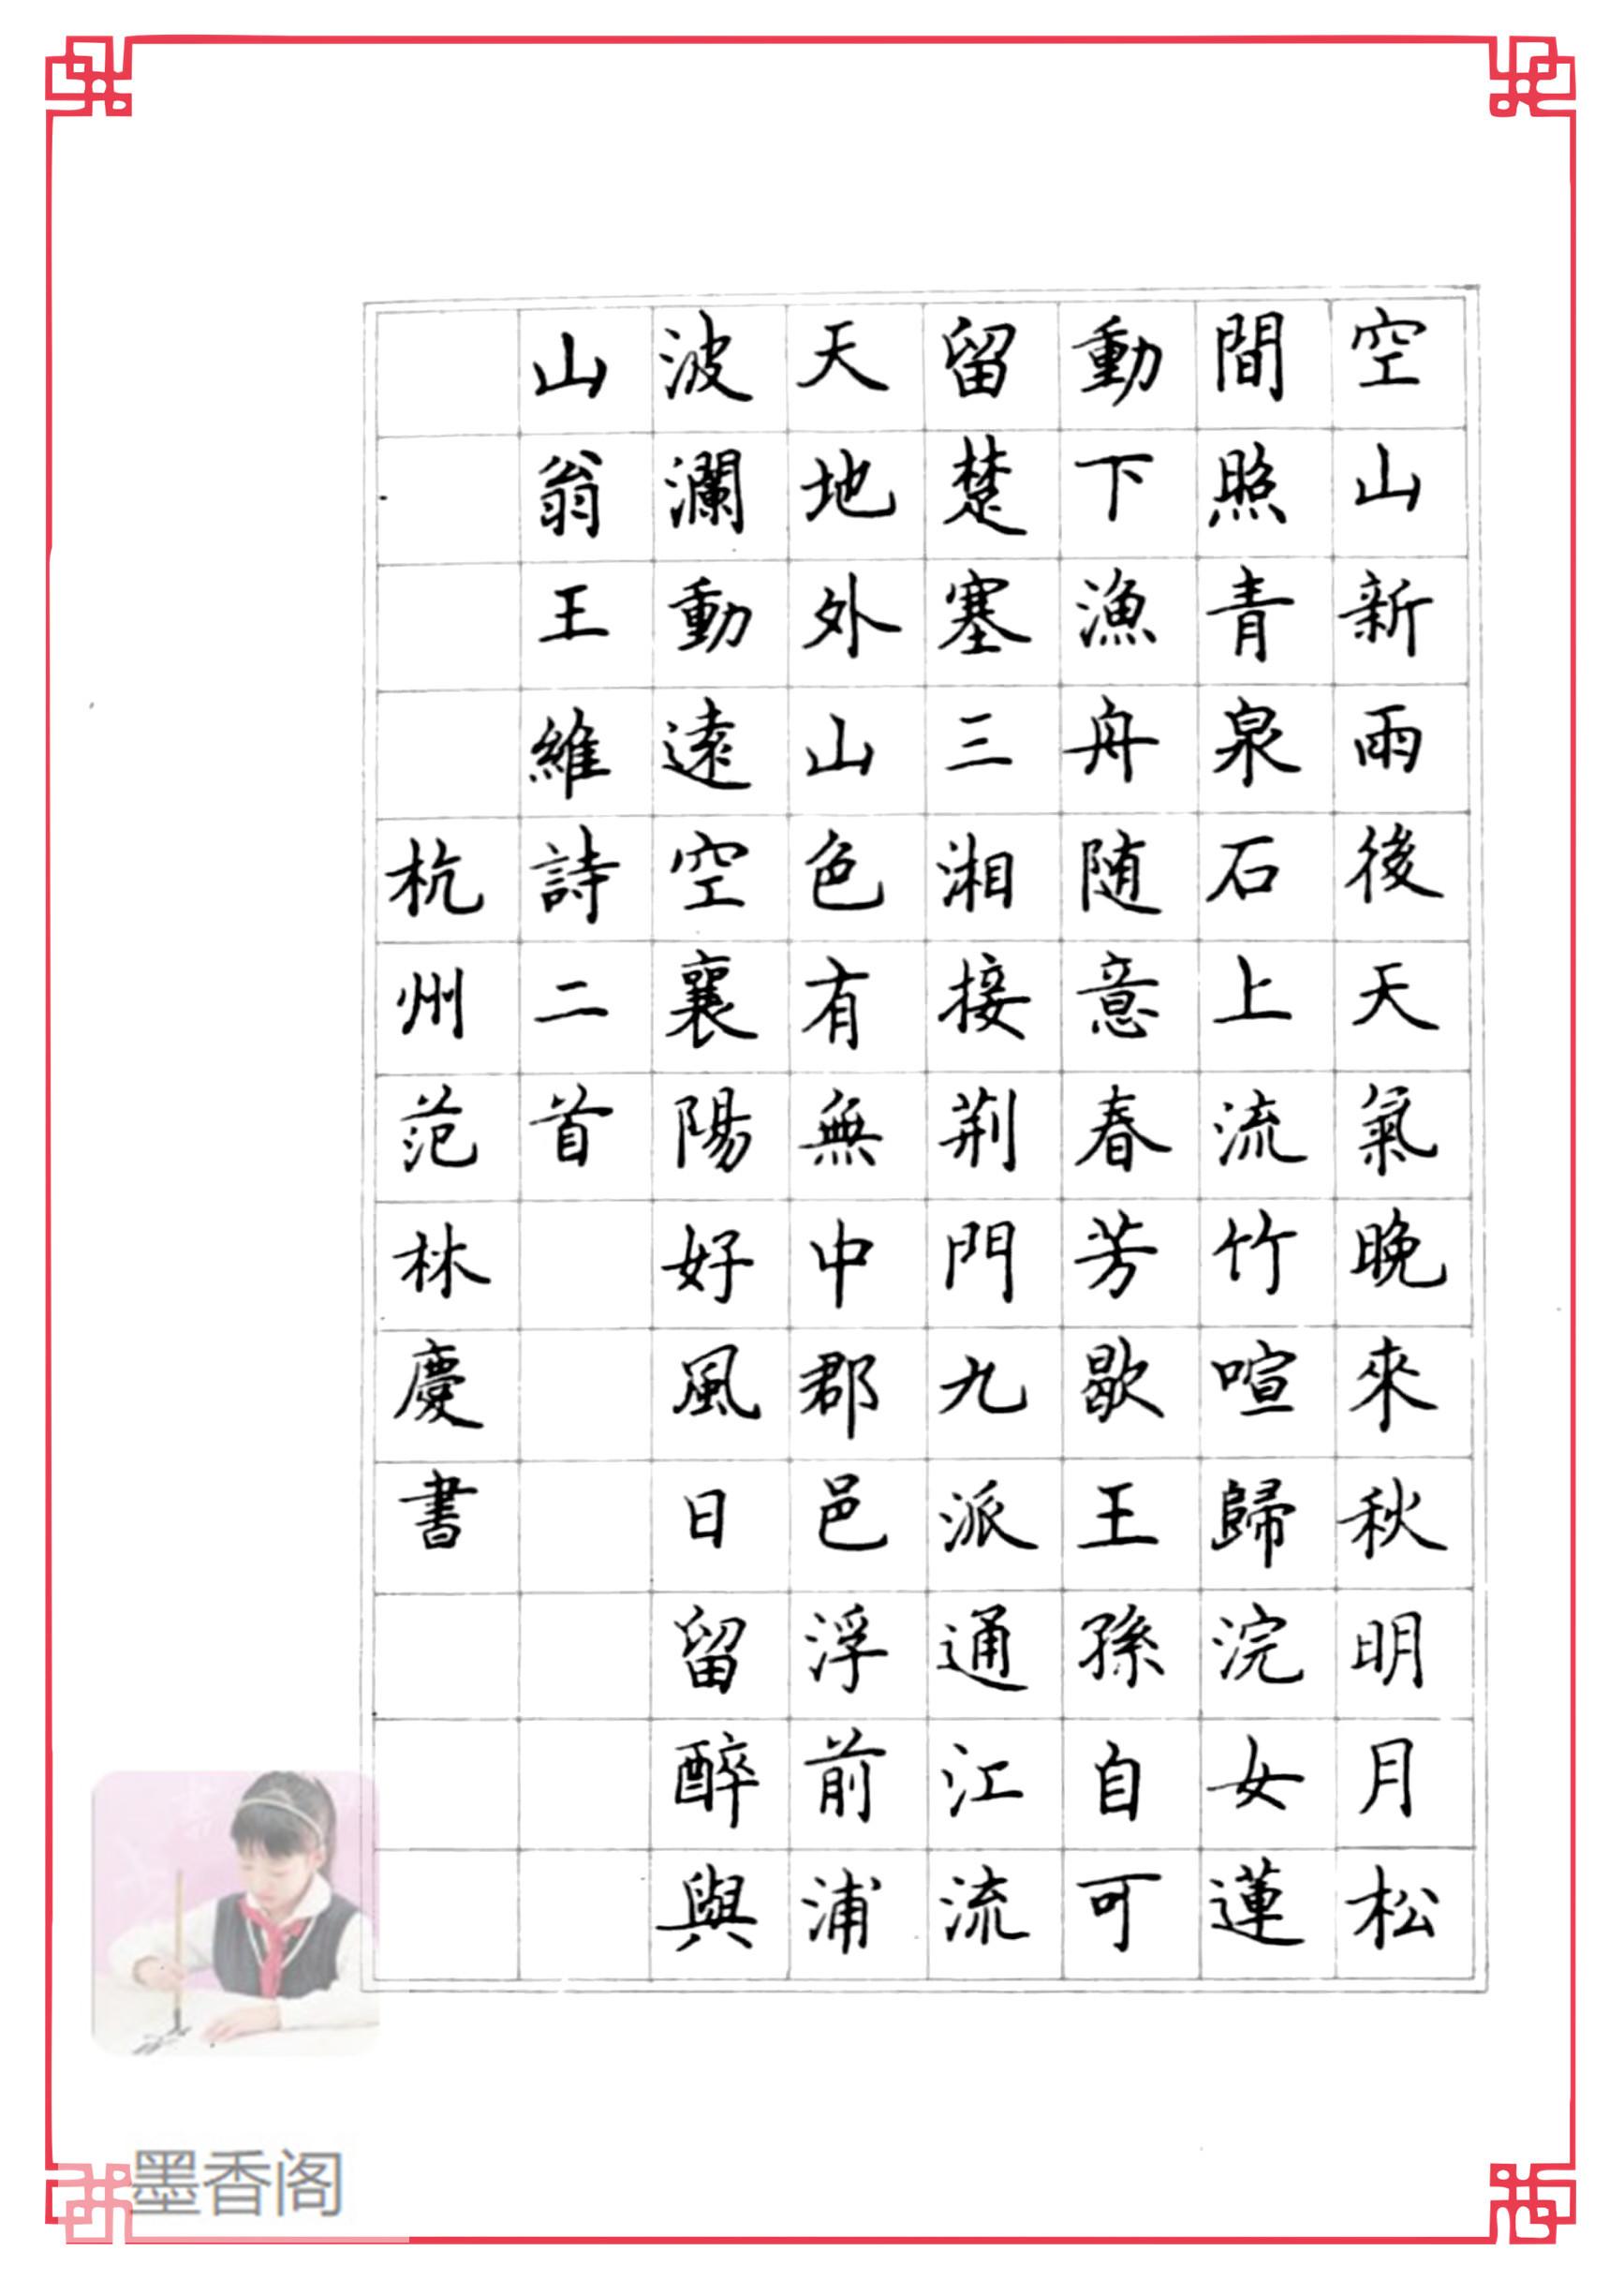 空山新雨後天氣晚來秋明月松
間照青泉石上流竹喧歸浣女蓮
動下漁舟随意春芳歇王孫自可
留楚塞三湘接荆門九派通江流
天地外山色有無中郡邑浮前浦
波瀾動遠空襄陽好風日留醉與
山翁王維詩二首
杭州范林慶書
墨香阁